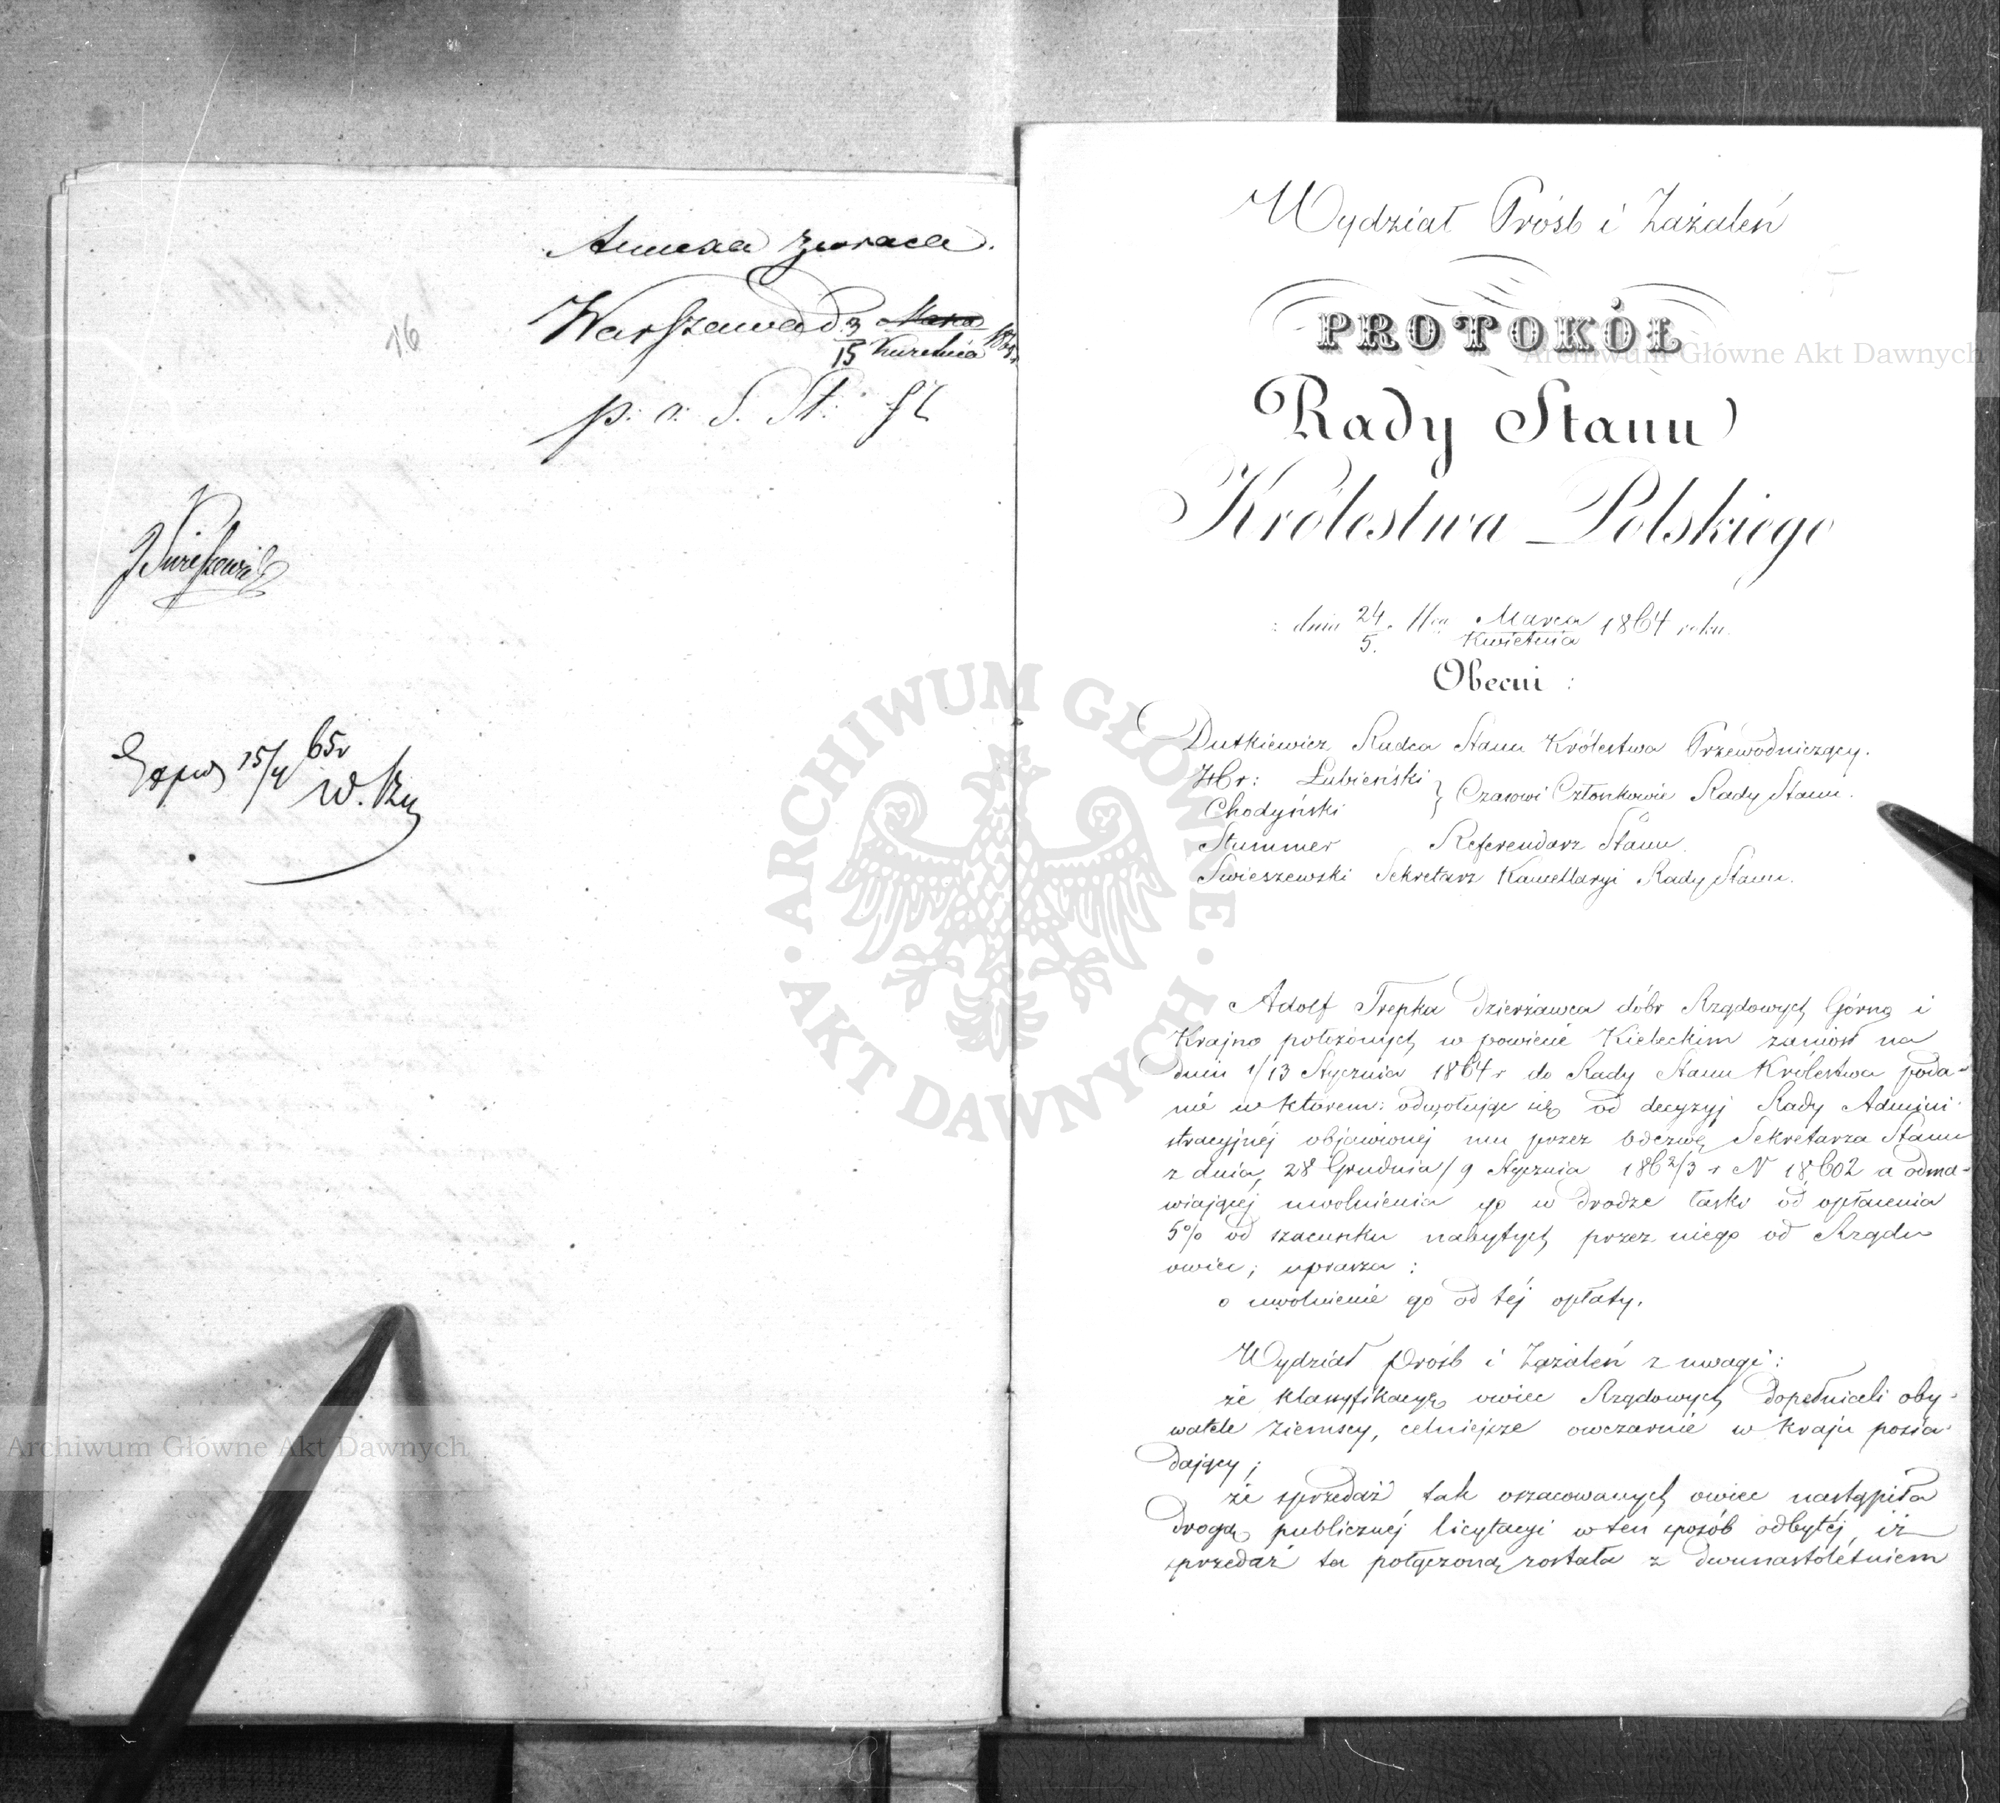 Annexa zwraca.
Warszawa d. 3/15 Marca Kwietnia 1865 r.
p. o. S. St.
16
15/4 65 r
Wydział Próśb i Zażaleń
PROTOKÓŁ
Rady Stanu
Królestwa Polskiego
dnia 24/5. Marca/Kwietnia 1864 roku.
Obecni :
Dutkiewicz Radca Stanu Królestwa Przewodniczący.
Hr: Łubieński } Czasowi Członkowie Rady Stanu.
Chodyński
Stummer Referendarz Stanu.
Swieszewski Sekretarz Kancellaryi Rady Stanu.
Adolf Trepka dzierżawca dóbr Rządowych Górno i
Krajno położonych w powiecie Kieleckim zaniosł na
dniu 1/13 Stycznia 1864 r do Rady Stanu Królestwa poda-
nie w którem: odwołując się od decyzyj Rady Admini-
stracyjnéj objawionéj mu przez odezwę Sekretarza Stanu
z dnia 28 Grudnia/9 Stycznia 186 2/3 r N 18,602 a odma-
wiającéj uwolnienia go w drodze łaski od opłacenia
5% od szacunku nabytych przez niego od Rządu
owiec; uprasza :
o uwolnienie go od téj opłaty.
Wydział Próśb i Zażaleń z uwagi :
że klassyfikacyę owiec Rządowych dopełniali oby-
watele ziemscy, celniejsze owczarnie w kraju posia-
dający ;
że sprzedaż tak oszacowanych owiec nastąpiła
drogą publicznéj licytacyi w ten sposób odbytéj, iż
sprzedaż ta połączoną została z dwunastoletniem
Archiwum Główne Akt Dawnych
Archiwum Główne Akt Dawnych
ARCHIWUM GŁÓWNE · AKT DAWNYCH ·